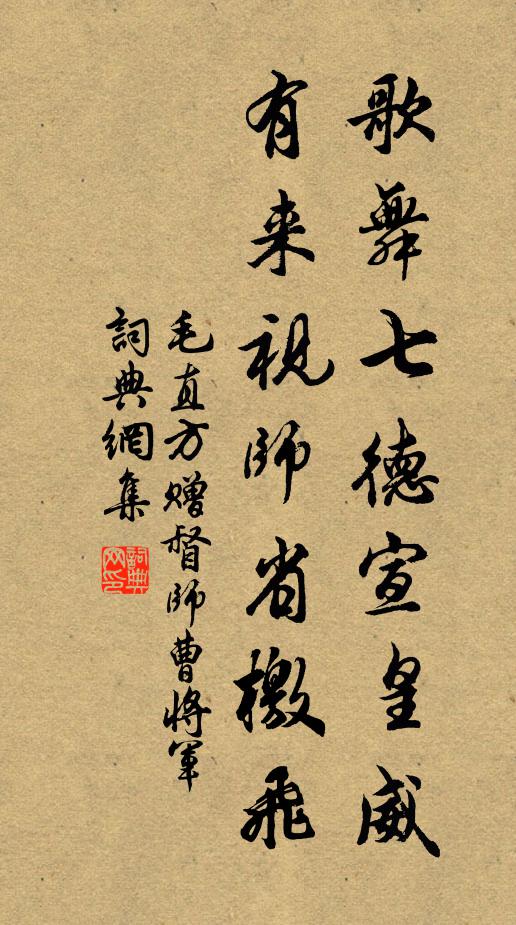 歌舞七德宣皇威
有来视師省檄飛
毛直方赠督師曹将軍
詞典網集
詞典网印